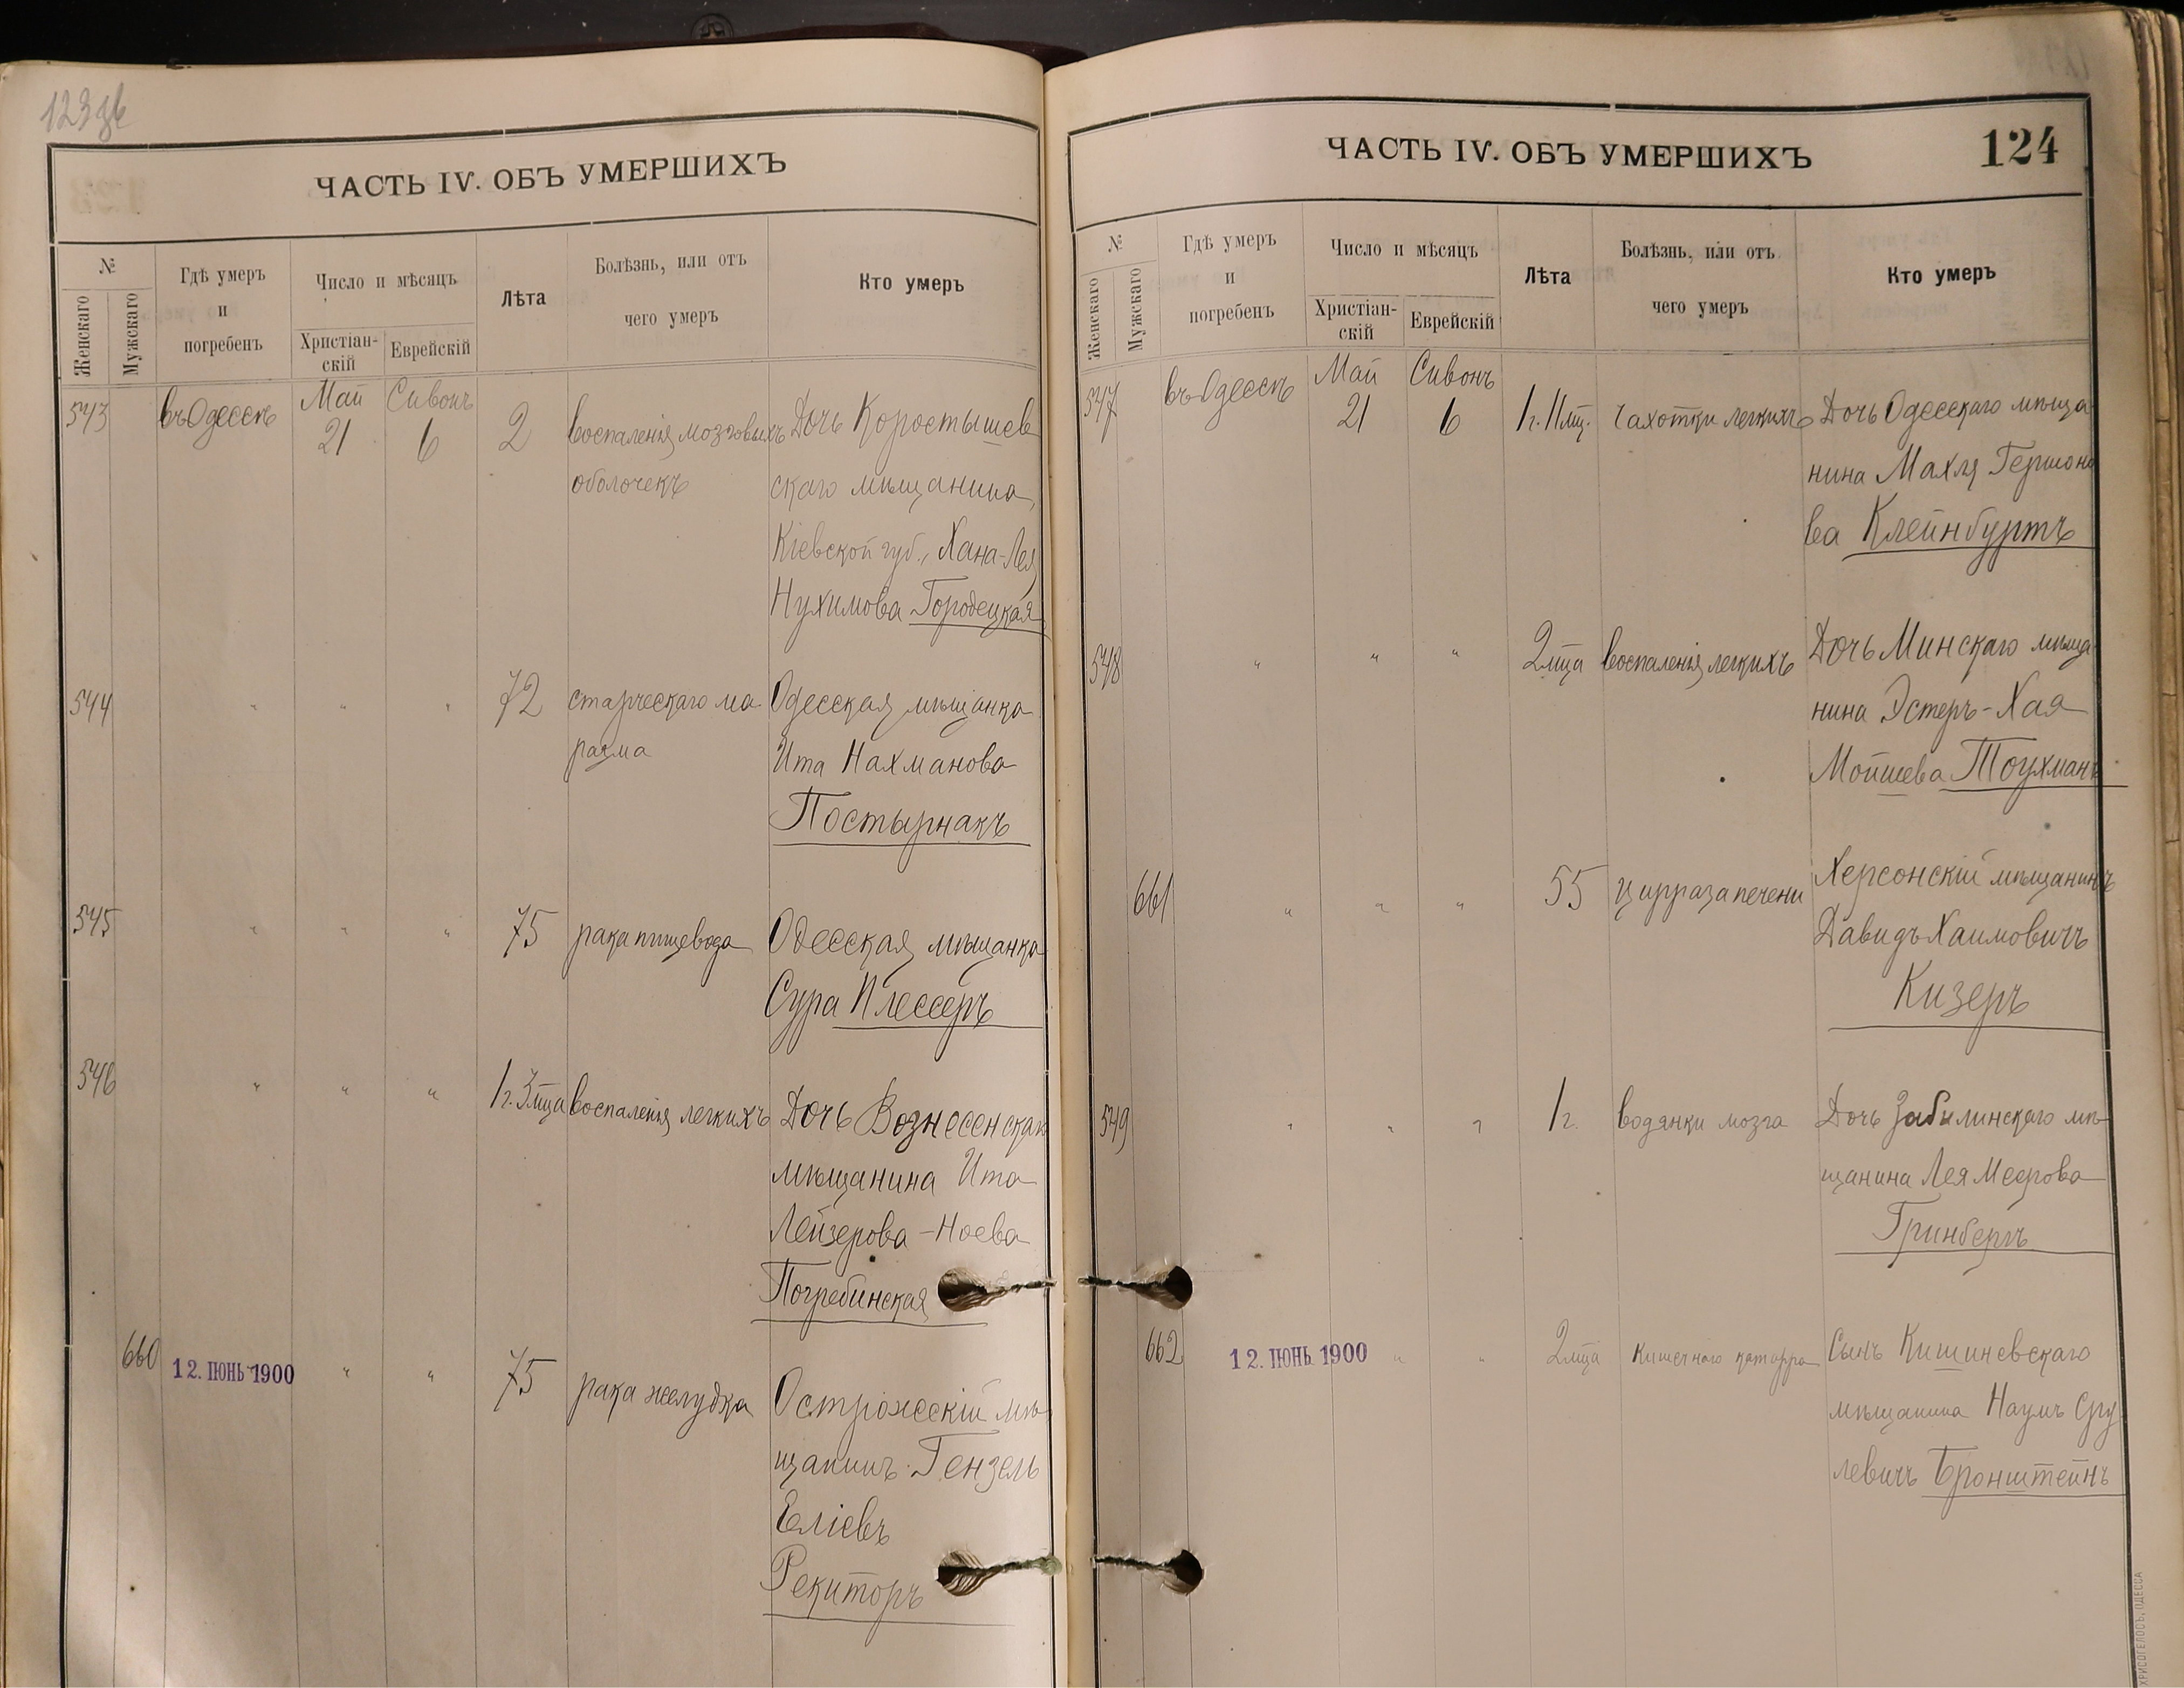 123 об
ЧАСТЬ IV. ОБЪ УМЕРШИХЪ
№
Женскаго
Мужскаго
Гдѣ умеръ
и
погребенъ
Число и мѣсяцъ
Христіан-
скій
Еврейскій
Лѣта
Болѣзнь, или отъ
чего умеръ
Кто умеръ
543 въ Одессѣ Май 21 Сивонъ 6 2 воспаленія мозговыхъ Дочь Коростышев
оболочекъ скаго мѣщанина,
Кіевской губ., Хана-Лея
Нухимова Городецкая
544 " " " 72 старческаго ма Одесская мѣщанка
разма Ита Нахманова
Постырнакъ
545 " " " 75 рака пищевода Одесская мѣщанка
Сура Плессеръ
546 " " " 1г. 3мца воспаленія легкихъ Дочь Вознесенскаго
мѣщанина Ита
Лейзерова-Ноева
Погребинская
660 12. ІЮНЬ 1900 " " 75 рака желудка Острожескій мѣ
щанинъ Гензель
Еліевъ
Рекиторъ
ЧАСТЬ IV. ОБЪ УМЕРШИХЪ
124
№
Женскаго
Мужскаго
Гдѣ умеръ
и
погребенъ
Число и мѣсяцъ
Христіан-
скій
Еврейскій
Лѣта
Болѣзнь, или отъ
чего умеръ
Кто умеръ
547 въ Одессѣ Май 21 Сивонъ 6 1г. 11мц. чахотки легкихъ Дочь Одесскаго мѣща
нина Махля Гершоно
ва Клейнбуртъ
548 " " " 2мца воспаленія легкихъ Дочь Минскаго мѣща
нина Эстеръ-Хая
Мойшева Тоухманъ
661 " " " 55 цирраза печени Херсонскій мѣщанинъ
Давидъ Хаимовичъ
Кизеръ
549 " " " 1г. водянки мозга Дочь Забилинскаго мѣ
щанина Лея Меерова
Гринбергъ
662 12. ІЮНЬ 1900 " " 2мца кишечнаго катарра Сынъ Кишиневскаго
мѣщанина Наумъ Сру
левичъ Бронштейнъ
ХРИСОГЕЛОСЪ, ОДЕССА